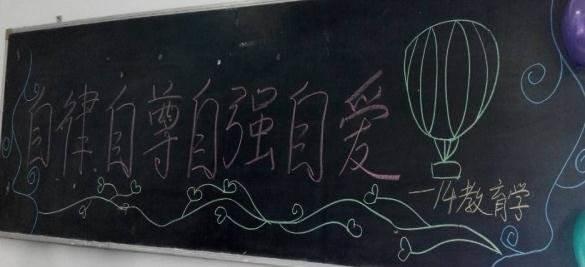 自律自尊自强自爱
—14教育学